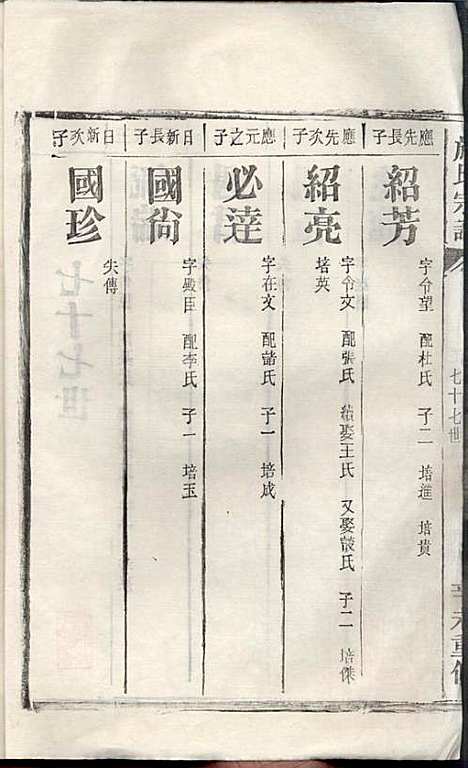 氏宗譜
七十七世
應先長子
紹芳
字令望 配杜氏 子二 培進 培貴
應先次子
紹亮
字令文 配張氏 續娶王氏 又娶薛氏 子二 培傑
培英
應元之子
必達
字在文 配諸氏 子一 培成
日新長子
國尙
字殿臣 配李氏 子一 培玉
日新次子
國珍
失傳